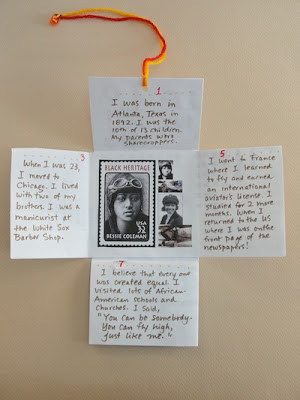 1
I was born in
Atlanta, Texas in
1892. I was the
10th of 13 children.
My parents were
sharecroppers.
3
When I was 23,
I moved to
Chicago. I lived
with two of my
brothers. I was a
manicurist at
the White Sox
Barber Shop.
BLACK HERITAGE
USA
32
BESSIE COLEMAN
5
I went to France
where I learned
to fly and earned
an international
aviator's license. I
studied for 2 more
months. When I
returned to the US
where I was on the
front page of the
newspapers!
7
I believe that every one
was created equal. I
visited lots of African-
American schools and
Churches. I said,
"You can be somebody.
You can fly high,
just like me."